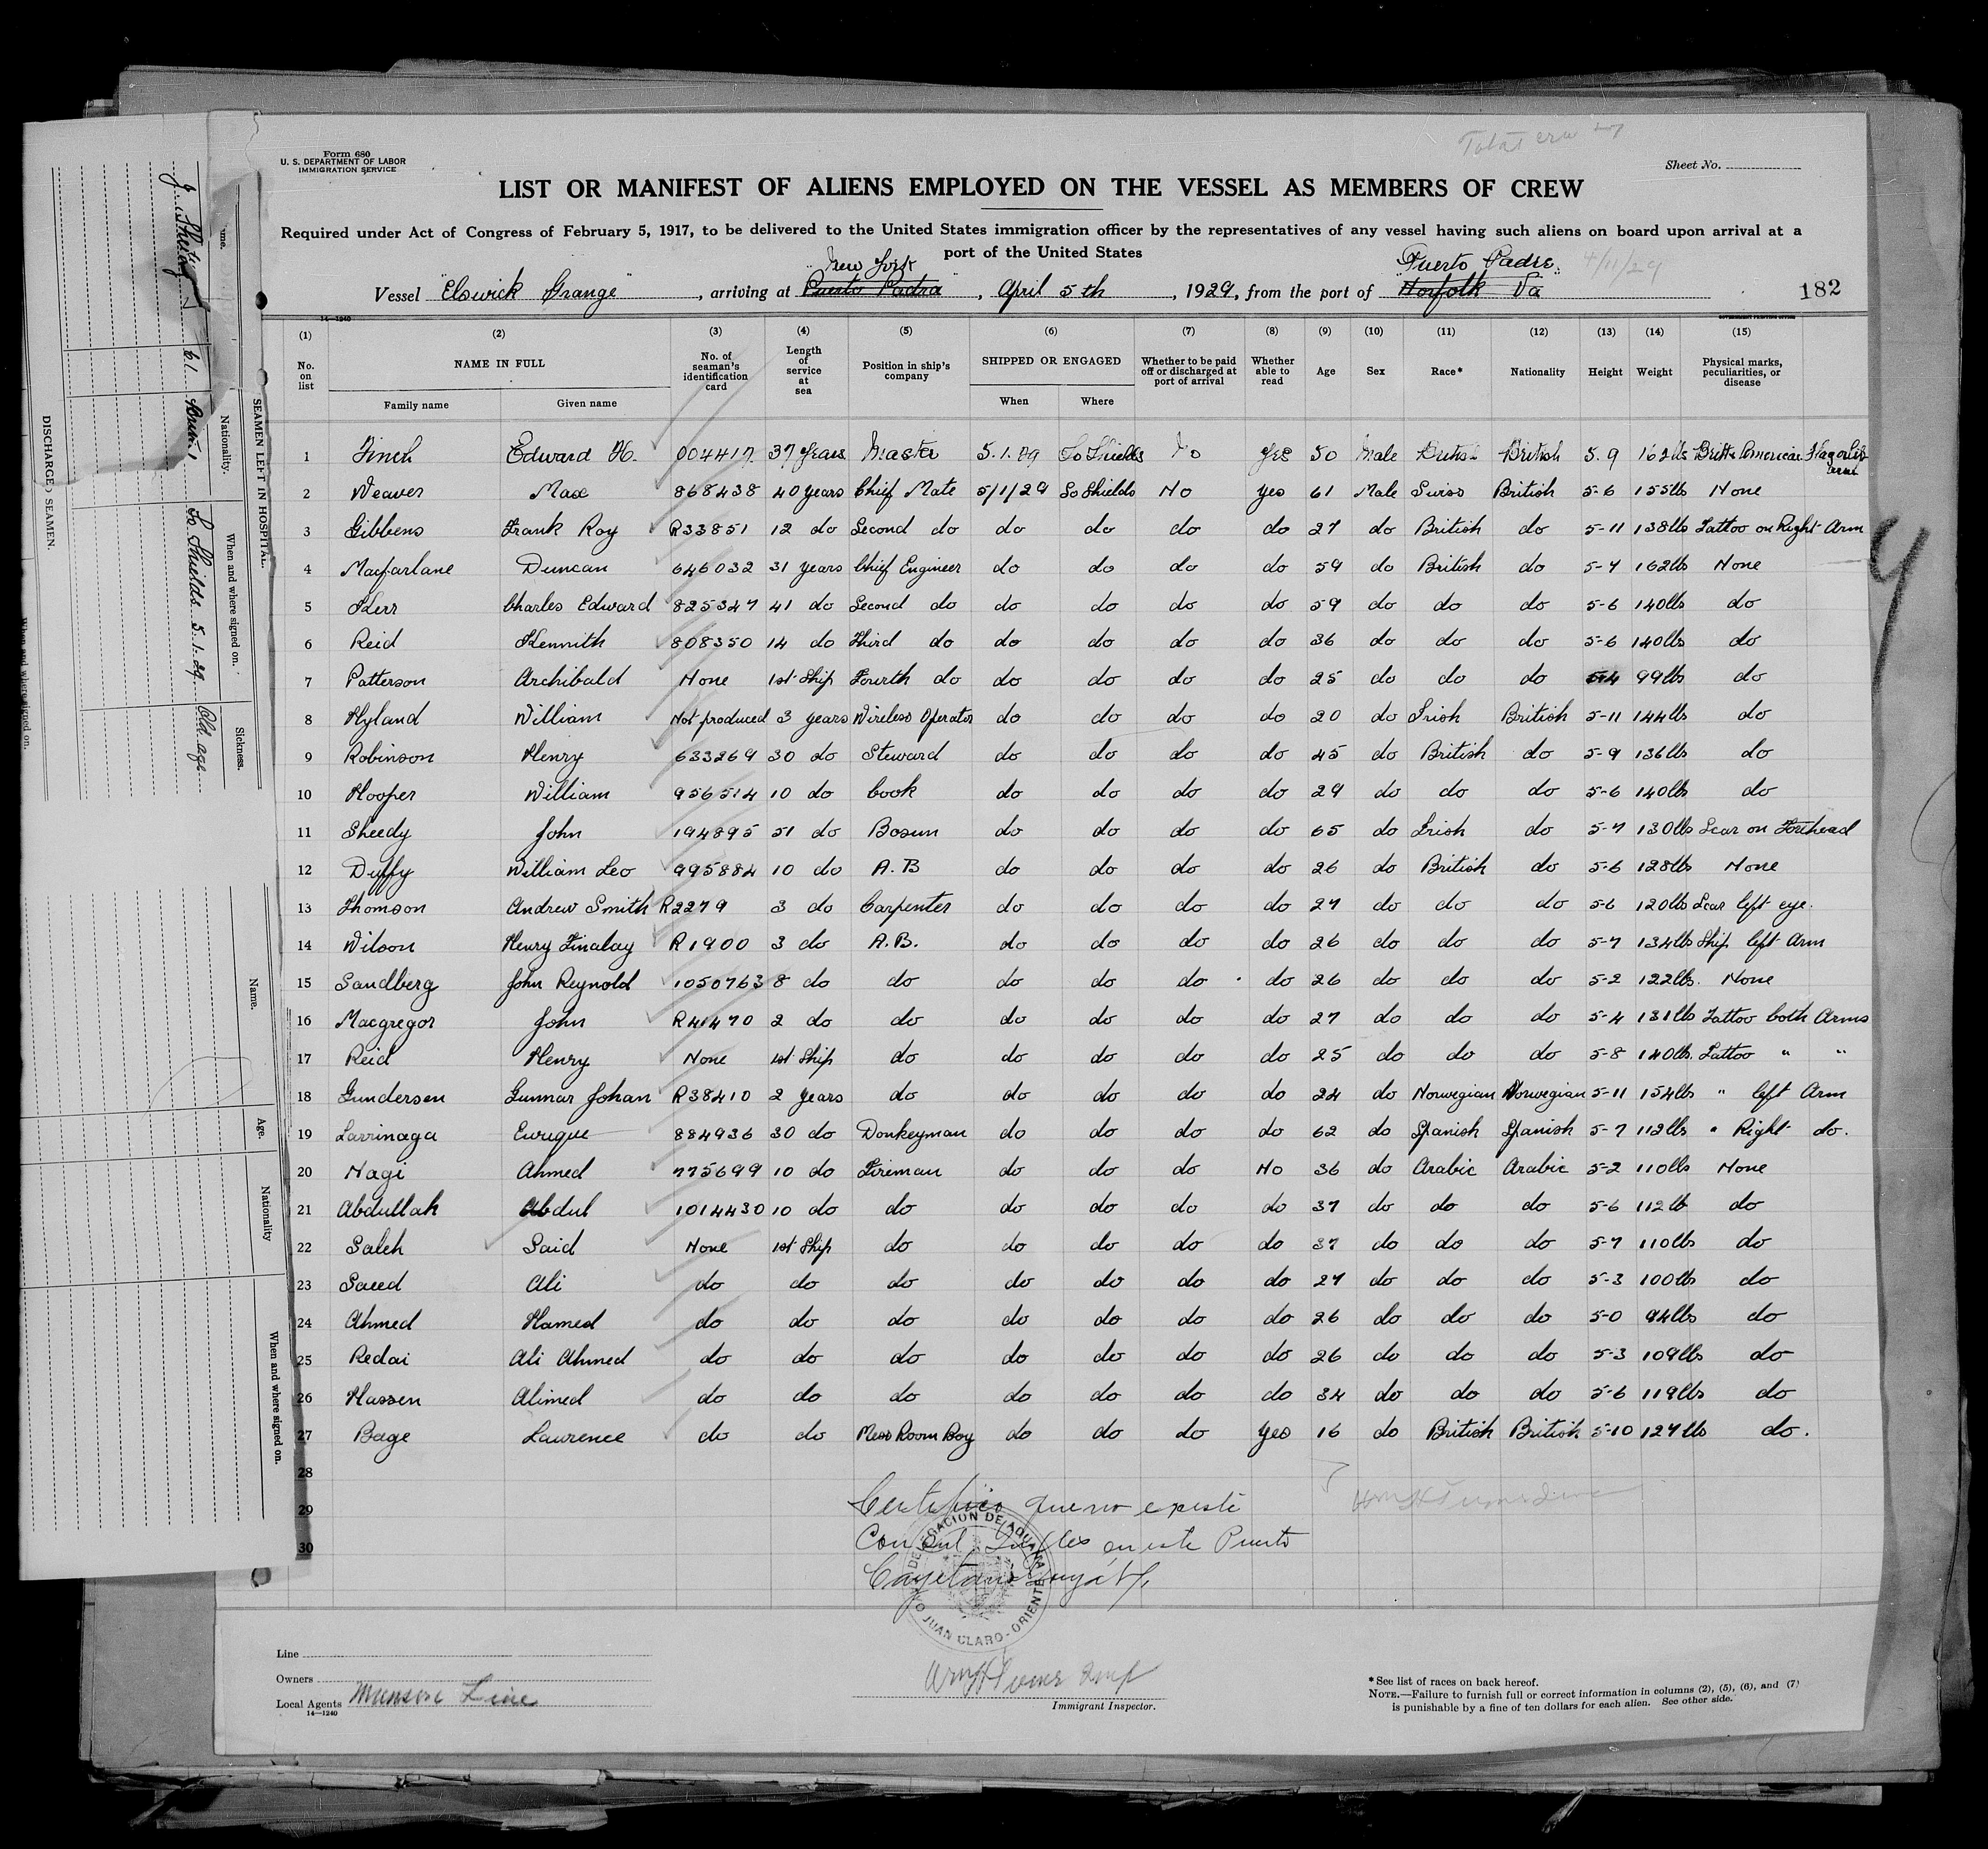 Form 680
U. S. DEPARTMENT OF LABOR
IMMIGRATION SERVICE
Total crew 27
Sheet No.
LIST OR MANIFEST OF ALIENS EMPLOYED ON THE VESSEL AS MEMBERS OF CREW
Required under Act of Congress of February 5, 1917, to be delivered to the United States immigration officer by the representatives of any vessel having such aliens on board upon arrival at a
port of the United States
New York Puerto Padre. 4/11/29
Vessel "Elswick Grange", arriving at Puerto Padra, April 5th, 1929, from the port of Norfolk Va 182
14—1240
(1) (2) (3) (4) (5) (6) (7) (8) (9) (10) (11) (12) (13) (14) (15)
No. on list NAME IN FULL No. of seaman's identification card Length of service at sea Position in ship's company SHIPPED OR ENGAGED Whether to be paid off or discharged at port of arrival Whether able to read Age Sex Race* Nationality Height Weight Physical marks, peculiarities, or disease
Family name Given name When Where
1 Finch Edward H. 004417 37 years Master 5.1.29 So Shields No yes 50 Male British British 5.9 162lbs American Flag arm
2 Weaver Max 868438 40 years Chief Mate 5/1/29 So Shields No yes 61 Male Swiss British 5-6 155lbs None
3 Gibbens Frank Roy R33851 12 do Second do do do do do 27 do British do 5-11 138lbs Tattoo on Right Arm
4 Macfarlane Duncan 646032 31 years Chief Engineer do do do do 59 do British do 5-7 162lbs None
5 Kerr Charles Edward 825347 41 do Second do do do do do 59 do do do 5-6 140lbs do
6 Reid Kennith 808350 14 do Third do do do do do 36 do do do 5-6 140lbs do
7 Patterson Archibald None 1st Ship Fourth do do do do do 25 do do do 5-4 99lbs do
8 Hyland William Not produced 3 years Wireless Operator do do do do 20 do Irish British 5-11 144lbs do
9 Robinson Henry 633269 30 do Steward do do do do 45 do British do 5-9 136lbs do
10 Hooper William 956514 10 do Cook do do do do 29 do do do 5-6 140lbs do
11 Sheedy John 194895 51 do Bosun do do do do 65 do Irish do 5-7 130lbs Scar on Forehead
12 Duffy William Leo 995884 10 do A.B do do do do 26 do British do 5-6 128lbs None
13 Thomson Andrew Smith R2279 3 do Carpenter do do do do 27 do do do 5-6 120lbs Scar left eye.
14 Wilson Henry Finalay R1900 3 do A.B. do do do do 26 do do do 5-7 134lbs Ship left Arm
15 Sandberg John Reynold 1050763 8 do do do do do do 26 do do do 5-2 122lbs. None
16 Macgregor John R41470 2 do do do do do do 27 do do do 5-4 131lbs Tattoo both Arms
17 Reid Henry None 1st Ship do do do do do 25 do do do 5-8 140lbs. Tattoo " "
18 Gundersen Gunnar Johan R38410 2 years do do do do do 24 do Norwegian Norwegian 5-11 154lbs " left Arm
19 Larrinaga Enrique 884936 30 do Donkeyman do do do do 62 do Spanish Spanish 5-7 112lbs " Right do.
20 Nagi Ahmed 775699 10 do Fireman do do do No 36 do Arabic Arabic 5-2 110lbs None
21 Abdullah Abdul 1014430 10 do do do do do do 37 do do do 5-6 112lb do
22 Saleh Said None 1st Ship do do do do do 37 do do do 5-7 110lbs do
23 Saeed Ali do do do do do do do 27 do do do 5-3 100lbs do
24 Ahmed Hamed do do do do do do do 26 do do do 5-0 94lbs do
25 Redai Ali Ahmed do do do do do do do 26 do do do 5-3 109lbs do
26 Hassen Alimed do do do do do do do 34 do do do 5-6 119lbs do
27 Bage Lawrence do do Mess Room Boy do do do yes 16 do British British 5-10 127lbs do.
28
29
30
Certifico que no existe
Consul Ingles en este Puerto
Cayetano
DELEGACION DE ADUANA
JUAN CLARO - ORIENTE
Line
Owners
Local Agents Munson Line
14—1240
Immigrant Inspector.
* See list of races on back hereof.
NOTE.—Failure to furnish full or correct information in columns (2), (5), (6), and (7)
is punishable by a fine of ten dollars for each alien. See other side.
SEAMEN LEFT IN HOSPITAL.
Nationality. When and where signed on. Sickness.
J. Sheedy 61 So Shields 5-1-29 Old age
DISCHARGED SEAMEN.
When and where signed on.
Name. Age. Nationality When and where signed on.